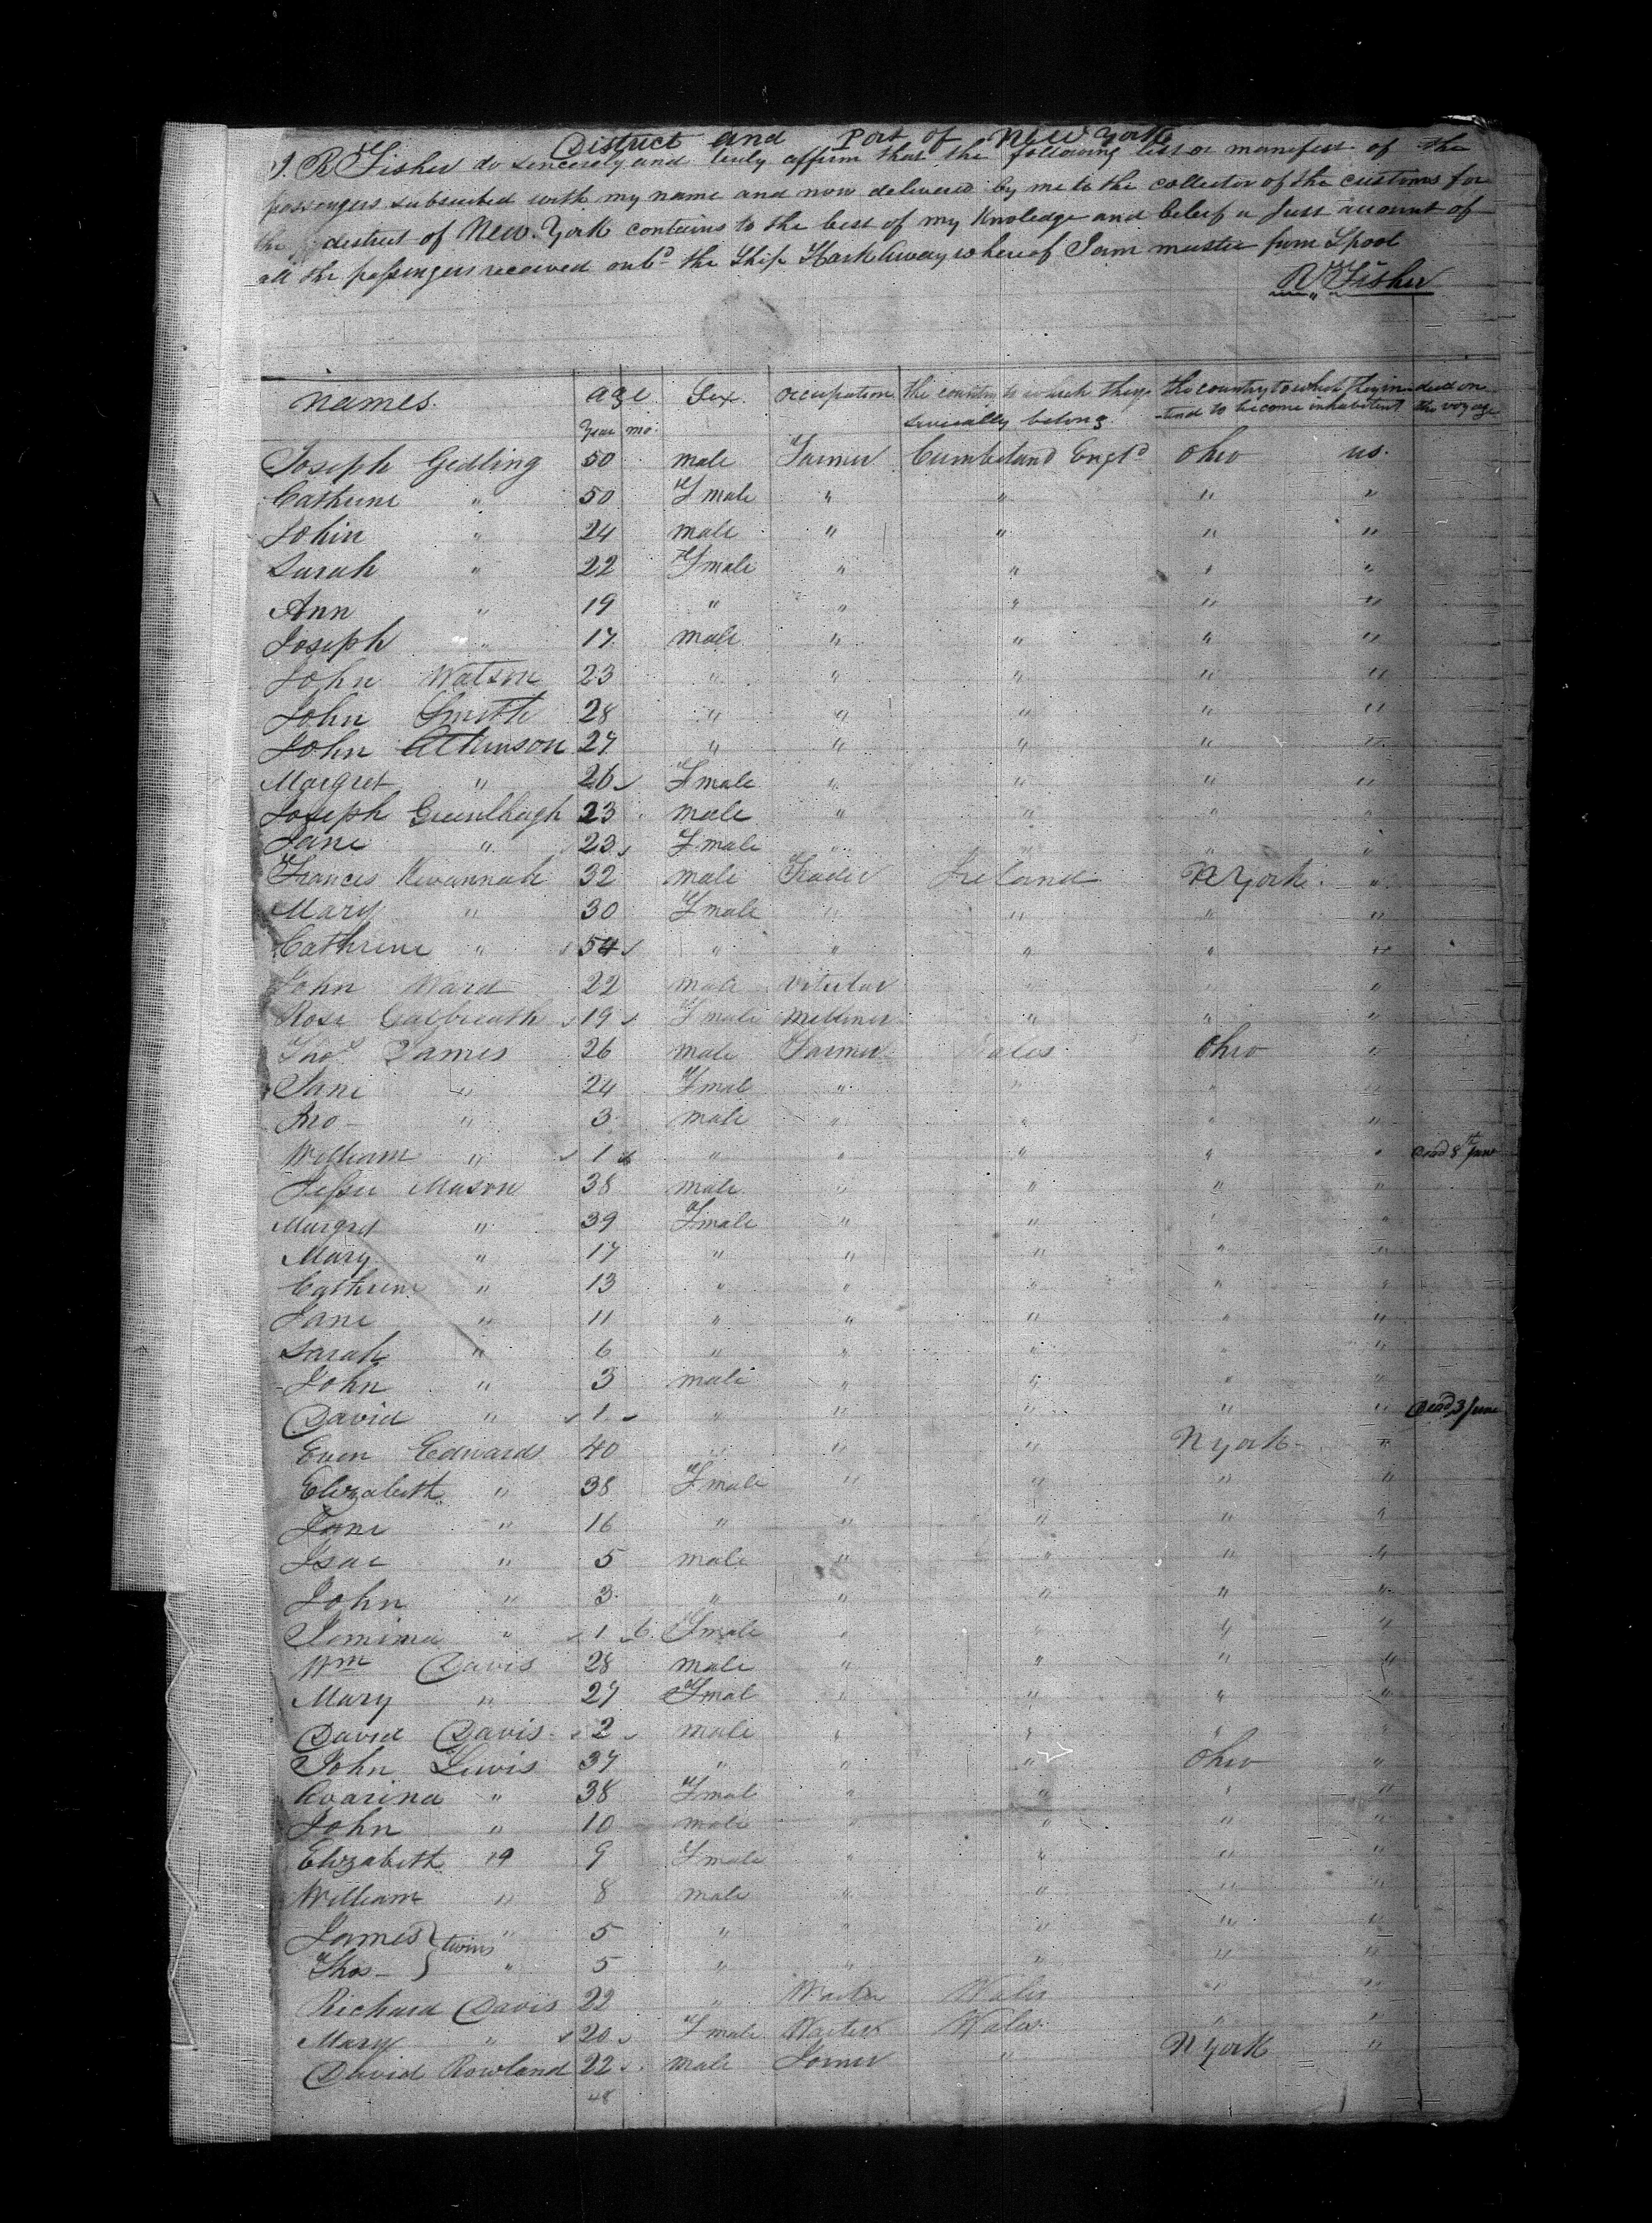 District and Port of New York
I. R Fisher do sincerely and truly affirm that the following list or manifest of the
passengers subscribed with my name and now delivered by me to the collector of the customs for
the district of New. York contains to the best of my Knoledge and beleif a Just account of
all the passengers received onbd the Ship Hark Away whereof I am master from Lpool
R Fisher
names. age Sex. occupation the country to which they the country to which they in- died on
Year mo. severally belong. -tend to become inhabitent the voyage
Joseph Gedling 50 male Farmer Cumberland Engld Ohio us.
Cathrine " 50 Fmale " " " "
John " 24 male " " " "
Sarah " 22 Fmale " " " "
Ann " 19 " " " " "
Joseph " 17 male " " " "
John Watson 23 " " " " "
John Smith 28 " " " " "
John Atkinson 27 " " " " "
Margret " 26 Fmale " " " "
Joseph Greenlhagh 23 male " " " "
Jane " 23 Fmale " " " "
Frances Kevannah 32 male Trader Ireland N York. "
Mary " 30 Fmale " " " "
Cathrine " 54 " " " " "
John Ward 22 male " " "
Rose Galbreath 19 Fmale Milliner " " "
Thos James 26 male Farmer Wales Ohio "
Jane " 24 Fmale " " " "
Jno " 3 male " " " "
William " 1 " " " " " Dead 8th June
Jessee Mason 38 male " " " "
Margret " 39 Fmale " " " "
Mary " 17 " " " " "
Cathrine " 13 " " " " "
Jane " 11 " " " " "
Sarah " 6 " " " " "
John " 3 male " " " "
David " 1 " " " " " Dead 3 June
Even Edwards 40 " " " N york "
Elizabeth " 38 Fmale " " " "
Jane " 16 " " " " "
Isac " 5 male " " " "
John " 3 " " " " "
Jemima " 1 6 Fmale " " " "
Wm Davis 28 male " " " "
Mary " 27 Fmal " " " "
David Davis 2 male " " " "
John Lewis 37 " " " Ohio "
" 38 Fmal " " " "
John " 10 male " " "
Elizabeth " 9 Fmale " " " "
William " 8 male " " "
James } twins " 5 " " " " "
Thos } " 5 " " " " "
Richard Davis 22 " Waiter Wales " "
Mary " 20 Fmale Waiter Wales " "
David Rowland 22 male Joiner " N York "
48